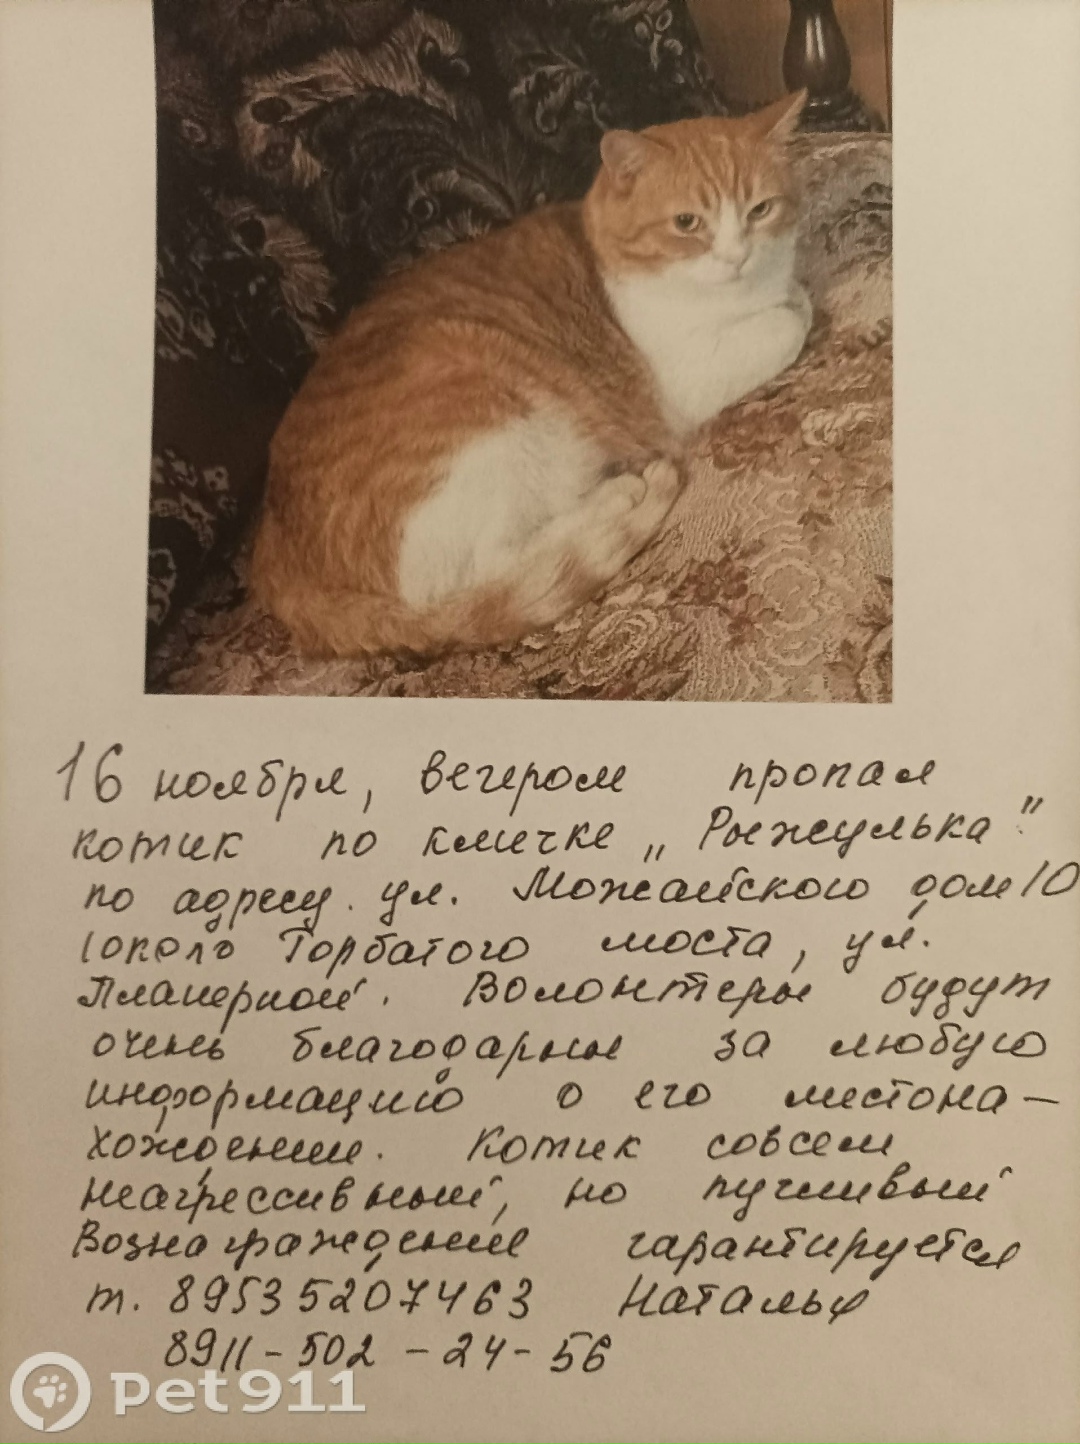 16 ноября, вечером пропал
котик по кличке „Рыжулька"
по адресу. ул. Можайского дом 10
(около Горбатого моста, ул.
Планерной. Волонтеры будут
очень благодарны за любую
информацию о его местона-
хождении. Котик совсем
неагрессивный, но пугливый
Вознаграждение гарантируется
т. 89535207463 Наталья
8911-502-24-56
pet911